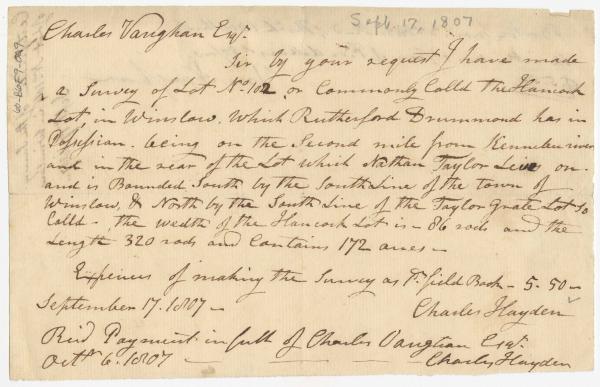 Sept. 17, 1807
Charles Vaughan Esqr.
Sir by your request I have made
a Survey of Lot No. 102, or Commonly Calld the Hancock
Lot, in Winslow, Which Rutherford Drummond has in
Possession. being on the Second mile from Kennebec river
and in the rear of the Lot which Nathan Taylor Lives on.
and is Bounded South by the South Line of the town of
Winslow, & North by the South Line of the Taylor Grate Lot So
Calld - the wedth of the Hancock Lot is - 86 rods and the
Length 320 rods and Contains 172 acres -
Expences of making the Survey as Pr. field Book - 5-50 -
September 17. 1807 - Charles Hayden
Recd Payment in full of Charles Vaughan Esqr.
Octr. 6. 1807 - Charles Hayden